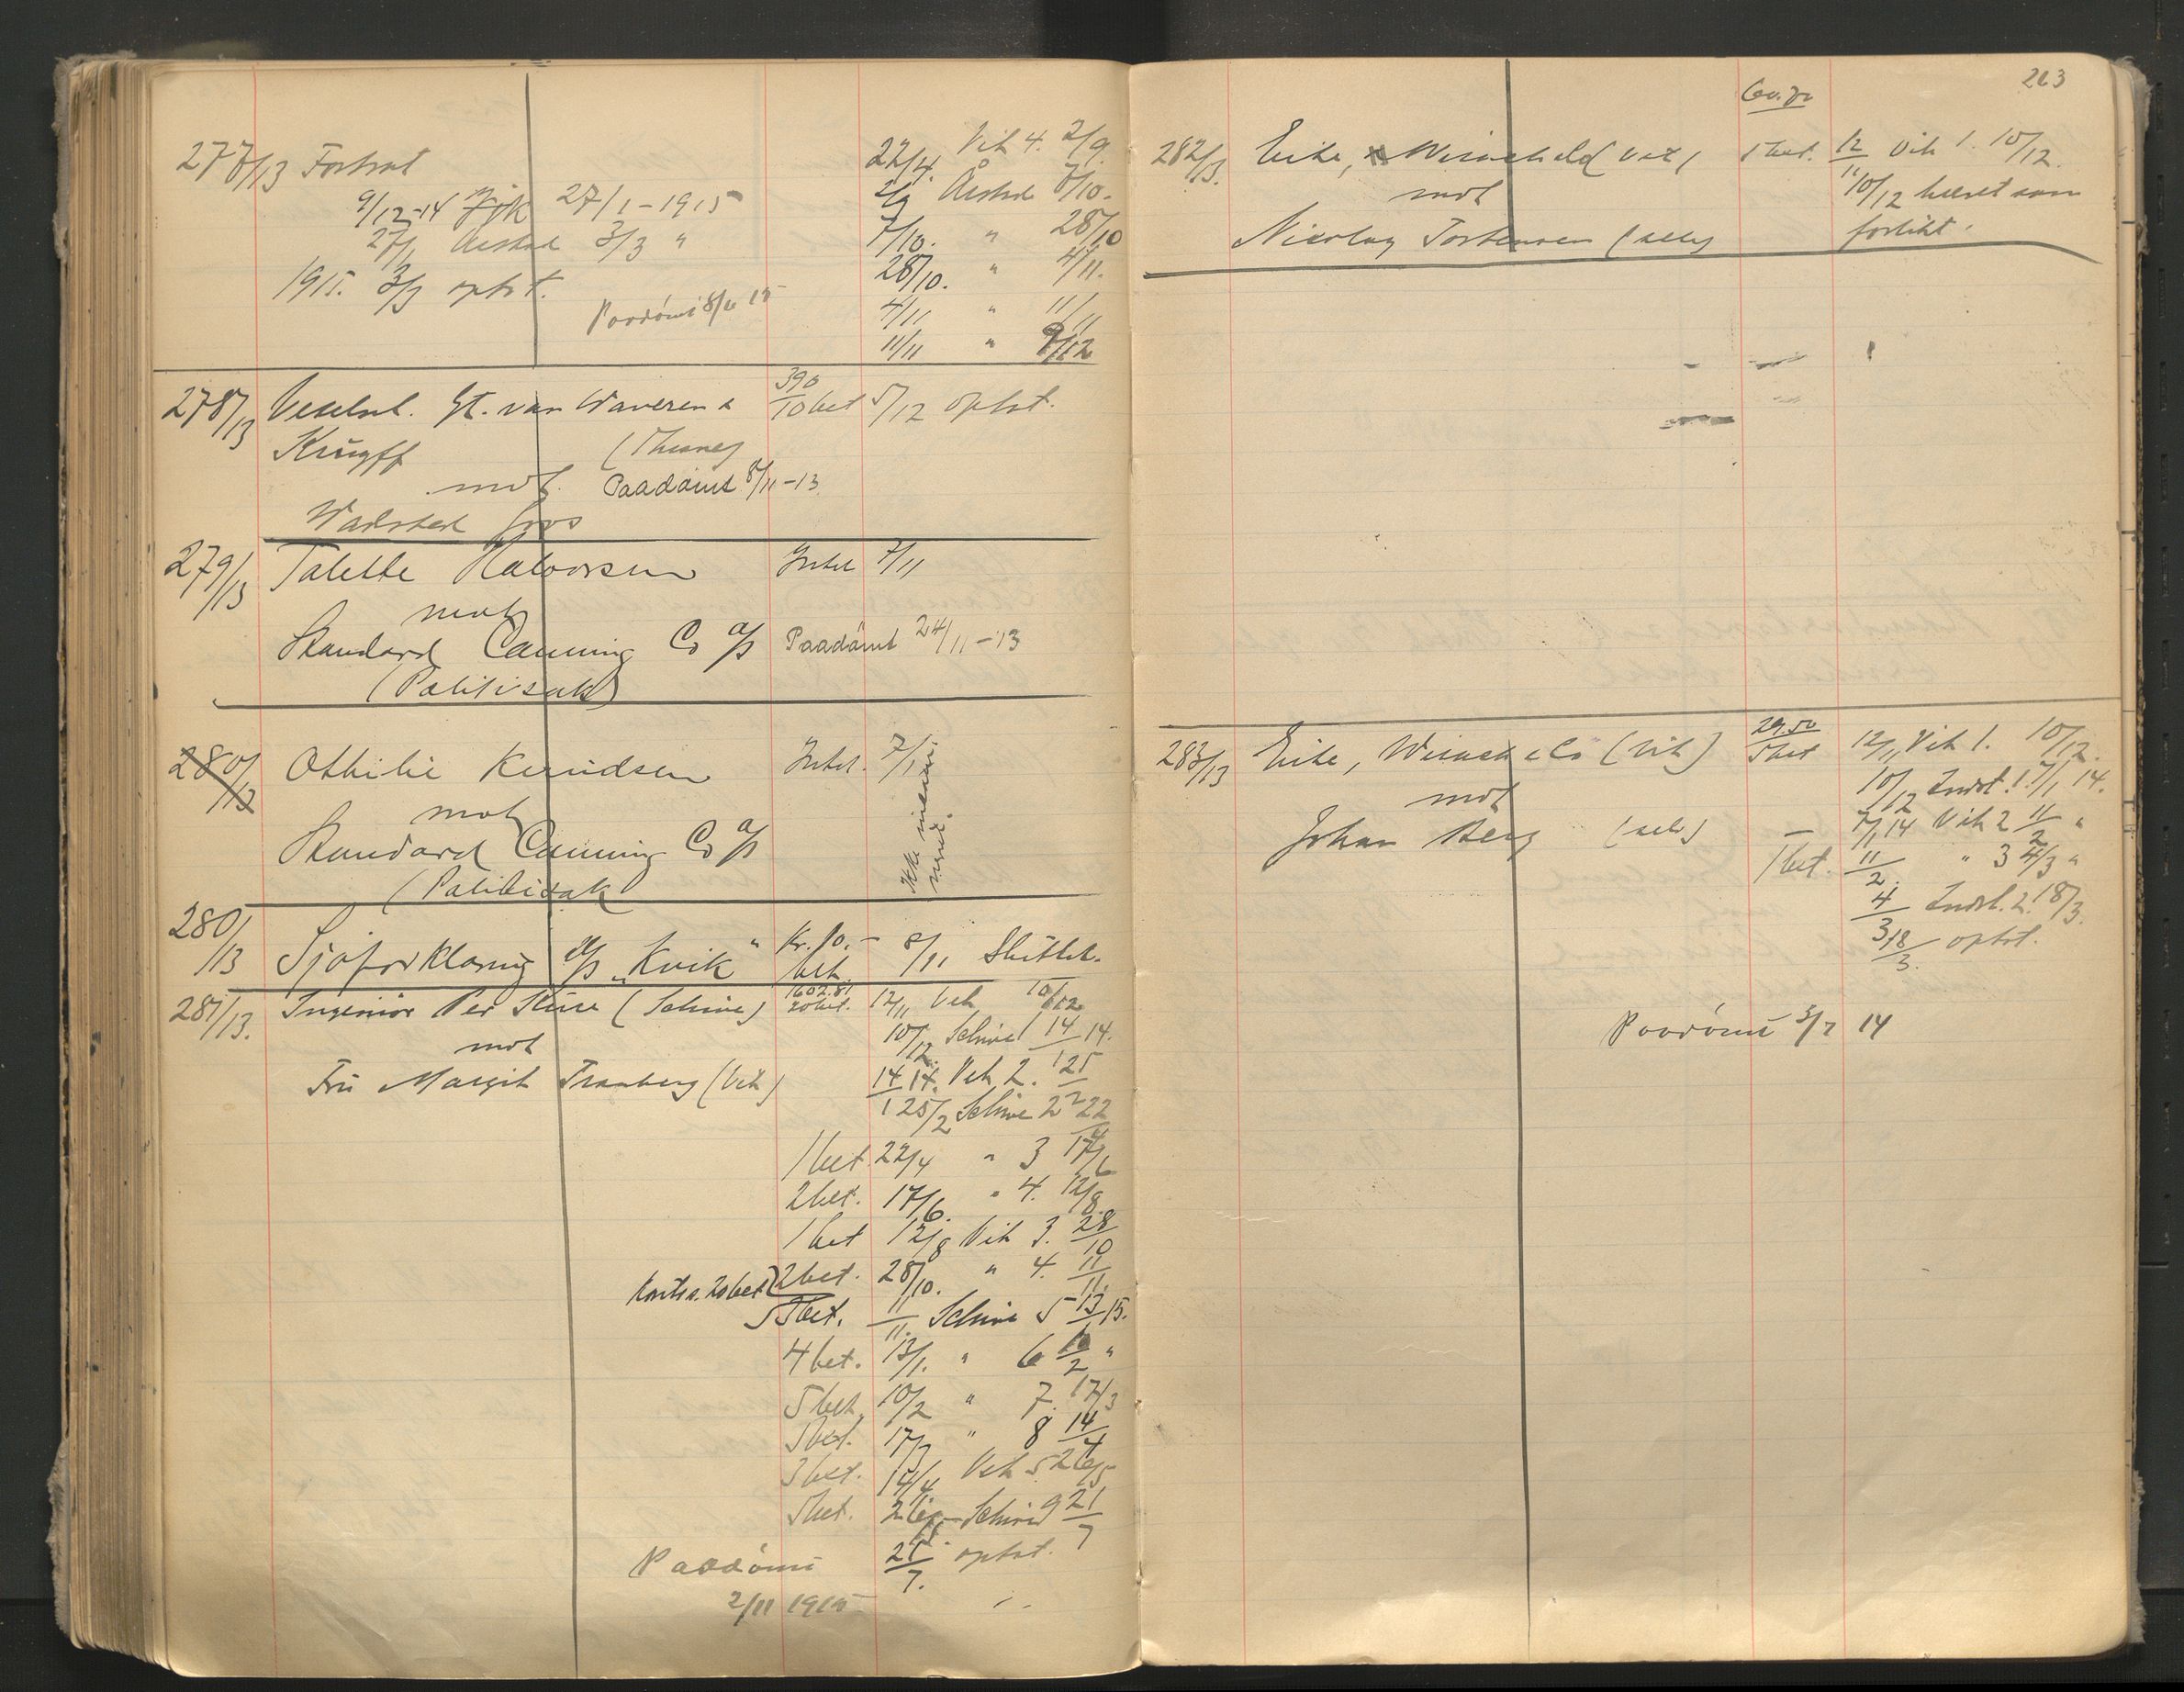 277/13 Fortsat
9/12-14 27/1 - 1915
27/1 Aarstad 3/3 "
1915. 3/3 optat.
Paadömt 8/6 15
22/4. Vik 4. 2/9.
2/9 Årstad 7/10.
7/10. " 28/10
28/10. " 4/11.
4/11 " 11/11
11/11 " 9/12
278/13 Vexelsel. Gt. van Waveren &
Kruyff
mot Paadömt 8/11-13
390
10 bet 5/12 optat.
279/13 Talette Halvorsen
mot
Standard Canning Co a/s
(Politisak)
Intet 7/11
Paadömt 24/11-13
280/13 Othilie Knudsen
mot
Standard Canning Co a/s
(Politisak
Intet. 7/11
Ikke
280/13 Sjøforklaring d/s "Kvik"
Kr. 10.-
bet.
8/11 Sluttet.
281/13. Ingeniör Per (Schive)
mot
Fru Margit Tranberg (Vik)
1602.81
20 bet. 12/11 Vik 10/12
10/12 Schive 1 14/1 14.
14/1 14. Vik 2. 25/2
25/2 Schive 2 22/4
1 bet 22/4 " 3 17/6
2 bet. 17/6. " 4. 12/8.
1 bet 12/8 Vik 3. 28/10
2 bet. 28/10. " 4. 11/11.
5 bet. 11/11. Schive 5 13/1 15.
4 bet. 13/1. " 6 10/2 "
5 bet. 10/2 " 7. 17/3
5 bet. 17/3 " 8 14/4
3 bet. 14/4. Vik 5 26/5
5 bet. 26/5 Schive 9 21/7
21/7. optat.
Paadömt
2/11 1915
263
282/13. Eike, (Vik)
mot
Nicolay Torstensen (selv)
60.70
1 bet. 12/11 Vik 1. 10/12.
10/12 hævet som
forlikt.
283/13 Eike, & Co (Vik)
mot
Johan Berg (selv)
29.50
5 bet 12/11 Vik 1. 10/12.
10/12 Indst. 1. 7/1 14.
— 7/1 14 Vik 2 11/2 "
1 bet. 11/2. " 3 4/3 "
4/3 Indst. 2. 18/3.
18/3. optat.
Paadömt 3/7 14